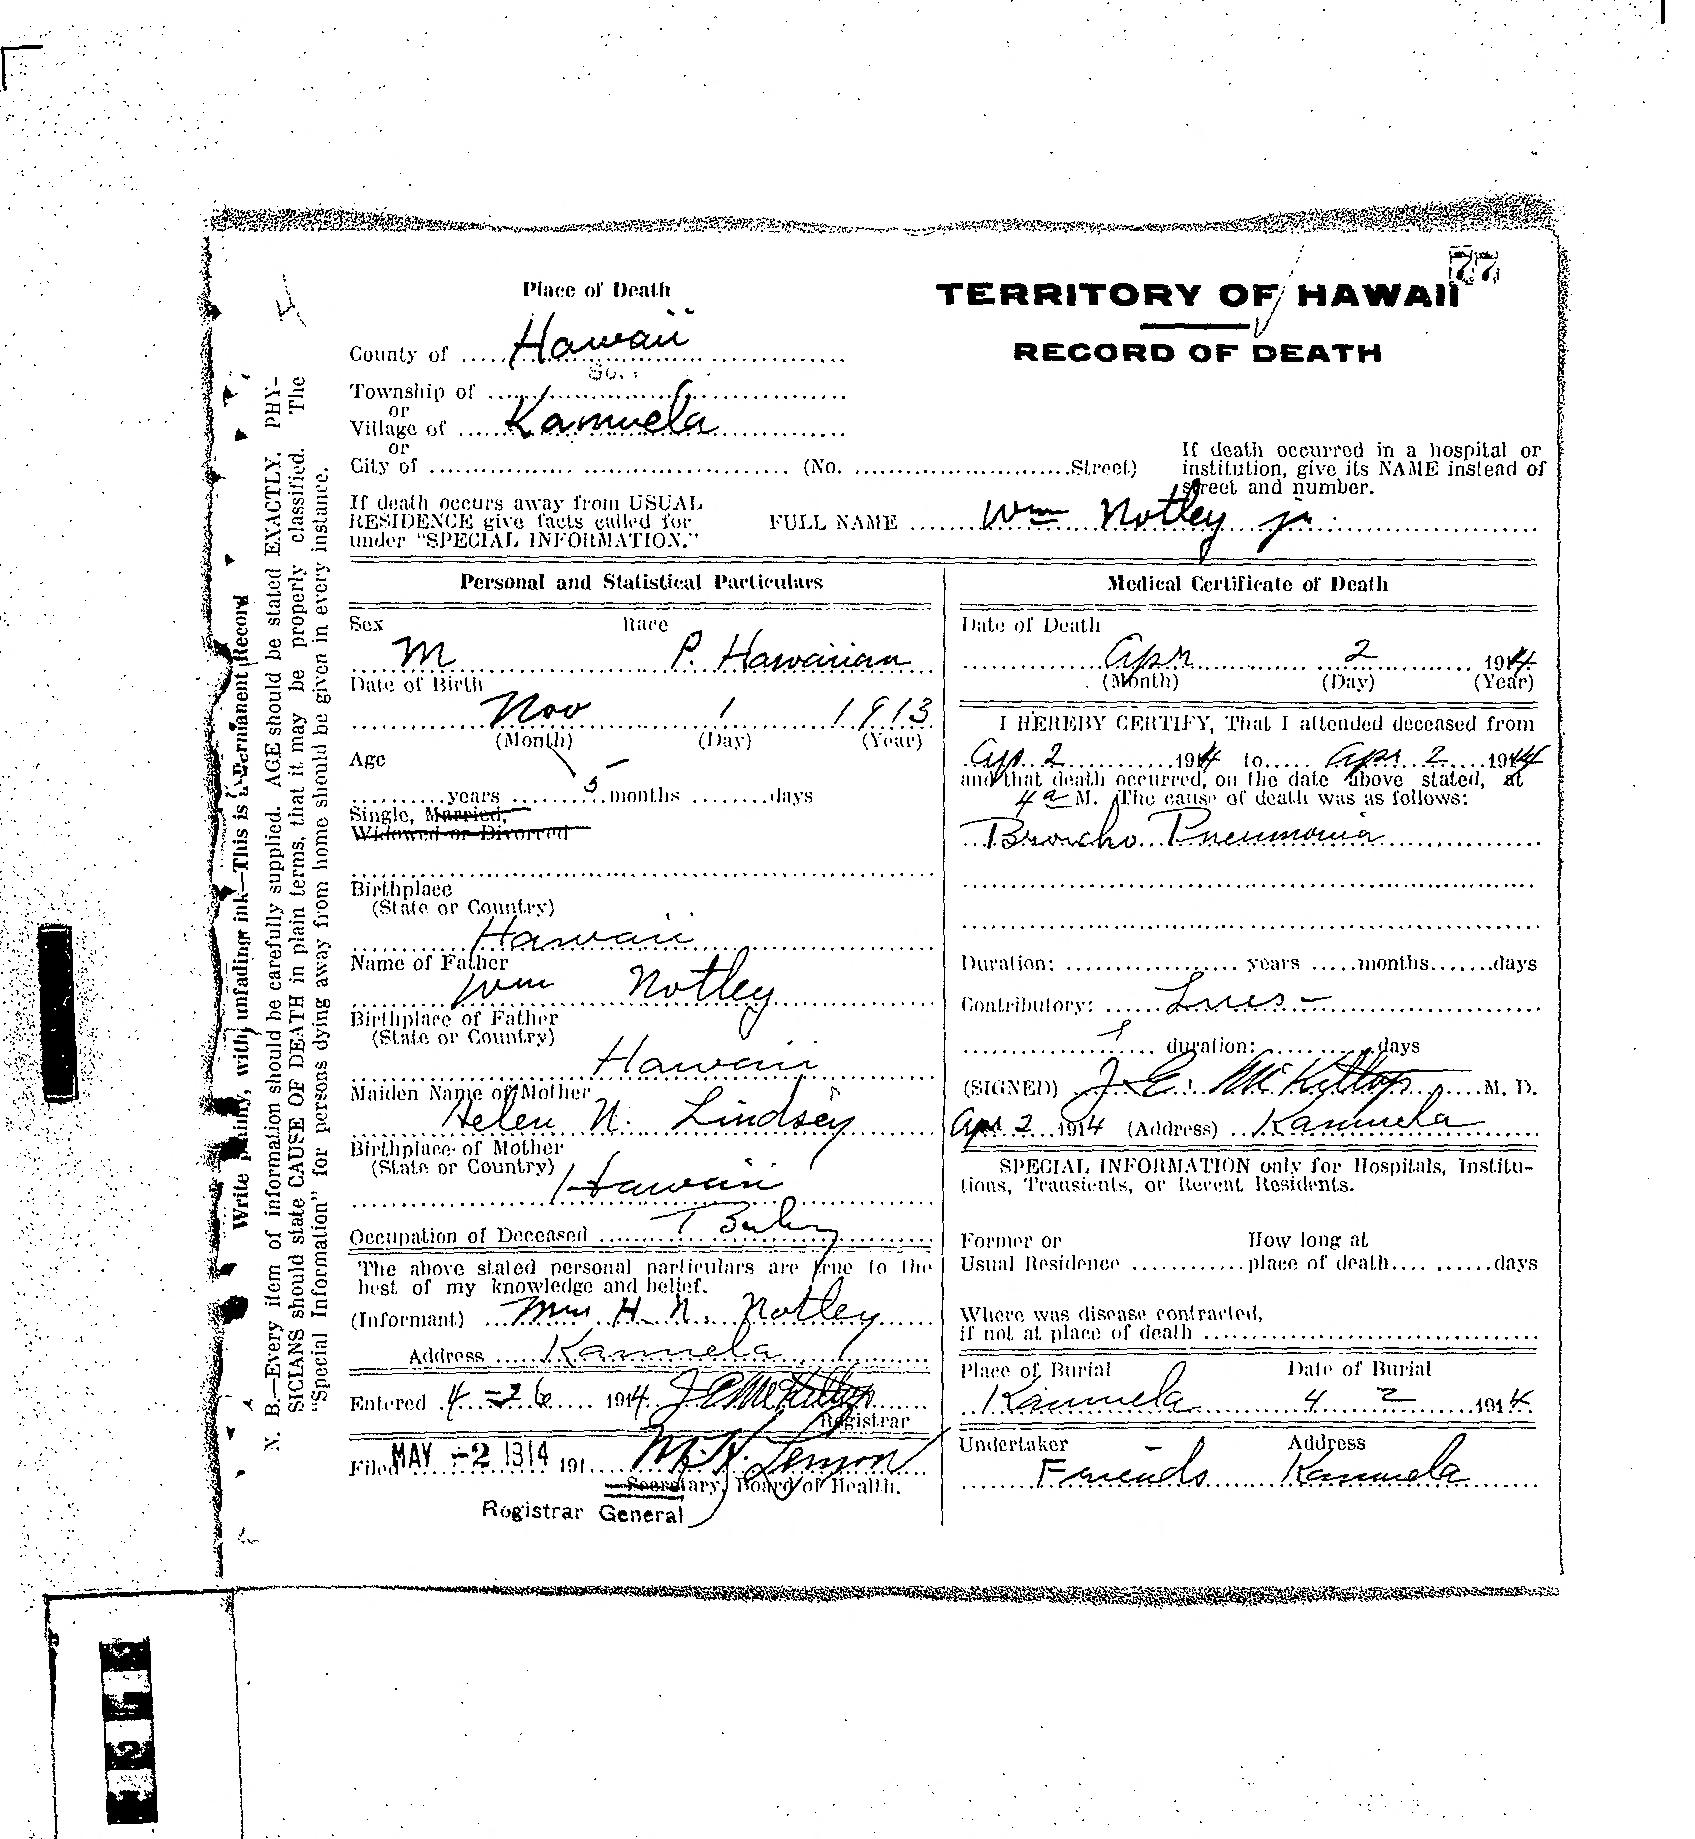 77
Place of Death
TERRITORY OF HAWAII
County of Hawaii
RECORD OF DEATH
So.
Township of
or
Village of Kamuela
or
City of (No. Street)
If death occurred in a hospital or
institution, give its NAME instead of
street and number.
If death occurs away from USUAL
RESIDENCE give facts called for
under "SPECIAL INFORMATION."
FULL NAME Wm Notley jr.
Personal and Statistical Particulars
Sex Race
M P. Hawaiian
Date of Birth
Nov 1 1913
(Month) (Day) (Year)
Age
years 5 months days
Single, Married,
Widowed or Divorced
Birthplace
(State or Country)
Hawaii
Name of Father
Wm Notley
Birthplace of Father
(State or Country)
Hawaii
Maiden Name of Mother
Helen N. Lindsey
Birthplace of Mother
(State or Country)
Hawaii
Occupation of Deceased
The above stated personal particulars are true to the
best of my knowledge and belief.
(Informant) Mrs H. N. Notley
Address Kamuela
Entered 4-26 1914 J E McKillop
Registrar
Filed MAY -2 1914 191 Lemon
Secretary, Board of Health.
Registrar General
Medical Certificate of Death
Date of Death
Apr 2 1914
(Month) (Day) (Year)
I HEREBY CERTIFY, That I attended deceased from
Ap. 2 1914 to Apr 2 1914
and that death occurred, on the date above stated, at
4 a M. The cause of death was as follows:
Broncho Pneumonia
Duration: years months days
Contributory: Lues -
duration: days
(SIGNED) J. E. McKillop M. D.
Apr 2 1914 (Address) Kamuela
SPECIAL INFORMATION only for Hospitals, Institu-
tions, Transients, or Recent Residents.
Former or How long at
Usual Residence place of death days
Where was disease contracted,
if not at place of death
Place of Burial Date of Burial
Kamuela 4 2 1914
Undertaker Address
Friends Kamuela
Write plainly, with unfading ink—This is a Permanent Record
N. B.—Every item of information should be carefully supplied. AGE should be stated EXACTLY. PHY-
SICIANS should state CAUSE OF DEATH in plain terms, that it may be properly classified. The
"Special Information" for persons dying away from home should be given in every instance.